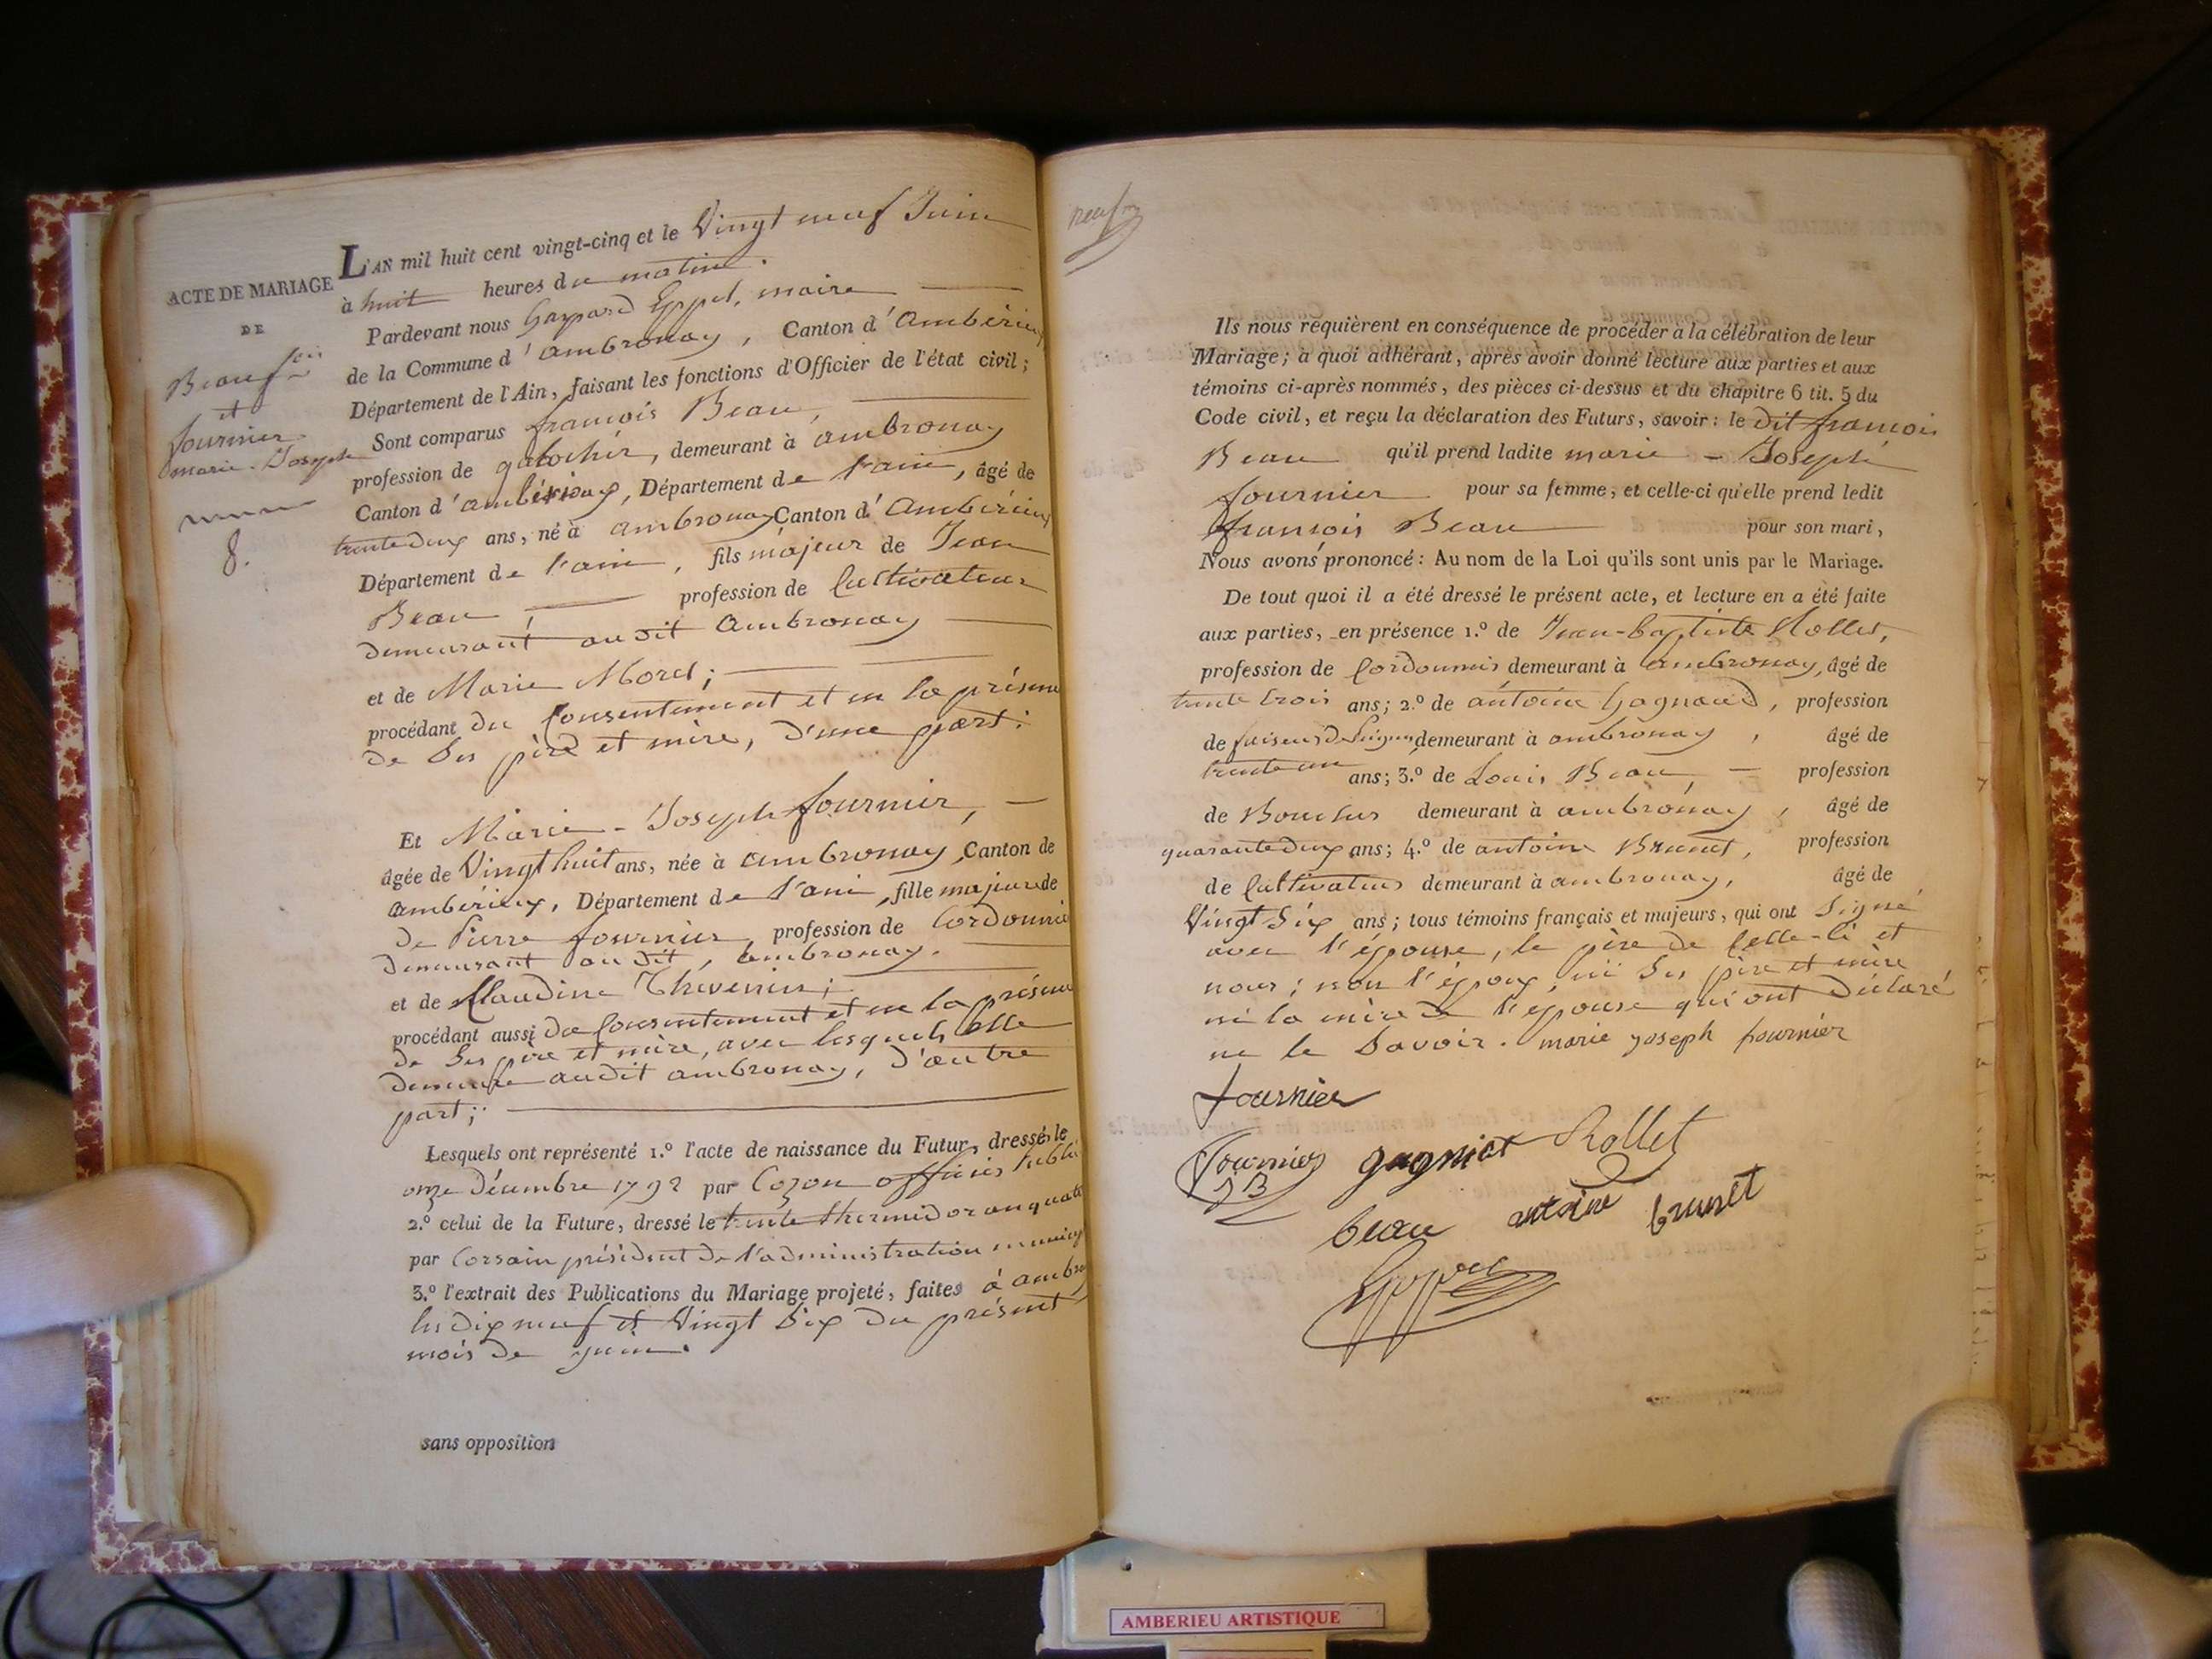 ACTE DE MARIAGE
DE
Beau fois
et
fournier
marie-Joseph
8.
L'AN mil huit cent vingt-cinq et le Vingt neuf Juin
à huit heures du matin.
Pardevant nous Gaspard Eppel, maire
de la Commune d'ambronay, Canton d'Ambérieux
Département de l'Ain, faisant les fonctions d'Officier de l'état civil;
Sont comparus françois Beau,
profession de galochér, demeurant à ambronay
Canton d'ambérieux, Département de l'ain, âgé de
trente deux ans, né à ambronay Canton d'Ambérieux
Département de l'ain, fils majeur de Jean
Beau, profession de Cultivateur
demeurant audit Ambronay
et de Marie Morel;
procédant du Consentement et en la présence
de Ses père et mère, d'une part:
Et Marie-Joseph fournier,
âgée de Vingt huit ans, née à ambronay Canton de
ambérieux, Département de l'ain, fille majeure de
De Pierre fournier, profession de Cordonnier
demeurant audit, ambronay.
et de Claudine Thévenin;
procédant aussi du Consentement et en la présence
de Ses père et mère, avec lesquels Elle
demeure audit ambronay, d'autre
part;
Lesquels ont représenté 1.º l'acte de naissance du Futur, dressé le
onze décembre 1792 par Cozon officier Public
2.º celui de la Future, dressé le trente thermidor an quatre
par Corsain président de l'administration municip
3.º l'extrait des Publications du Mariage projeté, faites à ambro
les dix neuf et Vingt Six du présent
mois de juin.
sans opposition
neuf
Ils nous requièrent en conséquence de procéder à la célébration de leur
Mariage; à quoi adhérant, après avoir donné lecture aux parties et aux
témoins ci-après nommés, des pièces ci-dessus et du chapitre 6 tit. 5 du
Code civil, et reçu la déclaration des Futurs, savoir: le dit françois
Beau qu'il prend ladite marie-Joseph
fournier pour sa femme, et celle-ci qu'elle prend ledit
françois Beau pour son mari,
Nous avons prononcé: Au nom de la Loi qu'ils sont unis par le Mariage.
De tout quoi il a été dressé le présent acte, et lecture en a été faite
aux parties, en présence 1.º de Jean-baptiste Rollet,
profession de Cordonnier demeurant à ambronay, âgé de
trente trois ans; 2.º de antoine Gagnaud, profession
de faiseur de Peignes demeurant à ambronay, âgé de
trente un ans; 3.º de Louis Beau, profession
de Boucher demeurant à ambronay, âgé de
quarante deux ans; 4.º de antoine Brunet, profession
de Cultivateur demeurant à ambronay, âgé de
Vingt Six ans; tous témoins français et majeurs, qui ont Signé
avec l'épouse, le père de Celle-ci et
nous; non l'époux, ni Ses père et mère
ni la mère de l'épouse qui ont déclaré
ne le Savoir. marie joseph fournier
fournier
Fournier gagniot Rollet
JB
beau antoine brunet
Eppel
AMBERIEU ARTISTIQUE